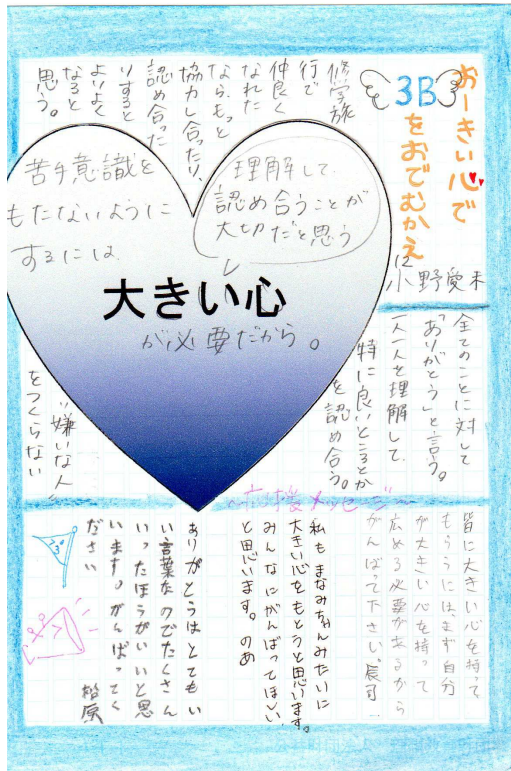 おーきい心で
3B
をおでむかえ
12
小野愛未
修学旅
行で
仲良く
なれた
なら、もっと
協力し合ったり、
認め合った
りすると
よりよく
なると
思う。
理解して、
認め合うことが
大切だと思う
苦手意識を
もたないように
するには
大きい心
が必要だから。
全てのことに対して
「ありがとう」と言う。
一人一人を理解して、
特に良いところとか
を認め合う。
"嫌いな人"
をつくらない
応援メッセージ
皆に大きい心を持って
もらうには、まず自分
が大きい心を持って
広める必要があるから
がんばって下さい。
私もまなみちゃんみたいに
大きい心をもとうと思います。
みんなにがんばってほしい
と思います。のあ
ありがとうはとてもい
い言葉なのでたくさん
いったほうがいいと思
います。がんばってく
ださい
松原